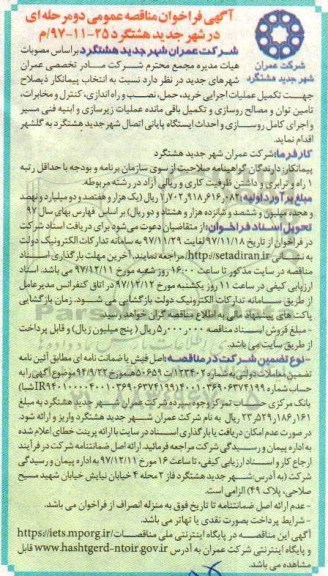 آگهی فراخوان مناقصه عمومی دو مرحله ای
در شهر جدید هشتگرد ۲۵-۱۱-۹۷/م
شرکت عمران
شهر جدید هشتگرد
شرکت عمران شهر جدید هشتگرد براساس مصوبات
هیات مدیره مجمع محترم شرکت مادر تخصصی عمران
شهرهای جدید در نظر دارد نسبت به انتخاب پیمانکار ذیصلاح
جهت تکمیل عملیات اجرایی خرید، حمل، نصب و راه اندازی، کنترل و مخابرات،
تامین توان و مصالح روسازی و تکمیل باقی مانده عملیات زیرسازی و ابنیه فنی مسیر
و اجرای کامل روسازی و احداث ایستگاه پایانی اتصال شهر جدید هشتگرد به گلشهر
اقدام نماید.
کارفرما: شرکت عمران شهر جدید هشتگرد
پیمانکار: دارندگان گواهینامه صلاحیت از سوی سازمان برنامه و بودجه با حداقل رتبه
۱ راه و ترابری و داشتن ظرفیت کاری و ریالی آزاد در رشته مربوطه.
مبلغ برآورد اولیه:
ریال (یک هزار و هفتصد و دو میلیارد و نهصد
و هجده میلیون و ششصد و شانزده هزار و هشتاد و دو ریال) بر اساس فهارس بهای سال ۹۷
تحویل اسناد فراخوان: از متقاضیان دعوت می‌شود برای دریافت اسناد شرکت
در فراخوان از تاریخ ۹۷/۱۱/۱۸ لغایت ۹۷/۱۱/۲۹ به سامانه تدارکات الکترونیک دولت
به نشانی http://setadiran.ir مراجعه نمایند. آخرین مهلت بارگذاری اسناد
مناقصه در سایت مذکور تا ساعت ۱۶:۰۰ روز شنبه مورخ ۹۷/۱۲/۱۱ می باشد. اسناد
ارزیابی کیفی در ساعت ۱۱ روز یکشنبه مورخ ۹۷/۱۲/۱۲ در اتاق کنفرانس مدیرعامل
از طریق سامانه تدارکات الکترونیک دولت بازگشایی می شود. زمان بازگشایی
پاکت های پیشنهاد مالی به اطلاع مناقصه گران خواهد رسید.
- مبلغ فروش اسناد مناقصه ۵,۰۰۰,۰۰۰ ریال (پنج میلیون ریال) و قابل پرداخت
از طریق سایت می باشد.
- نوع تضمین شرکت در مناقصه: اصل فیش یا ضمانت نامه ای مطابق آئین نامه
تضمین معاملات دولتی به شماره ۱۲۳۴۰۲/ت۵۰۶۵۹ هـ مورخ ۹۴/۹/۲۲ موضوع آگهی را به
حساب شماره
بانک مرکزی حساب تمرکز وجوه سپرده شرکت عمران شهر جدید هشتگرد به مبلغ
ریال به نام شرکت عمران شهر جدید هشتگرد واریز و ارائه شود.
در صورت عدم امکان دریافت یا بارگذاری اسناد در سایت با ارائه پرینت خطای اعلام شده
به اداره پیمان و رسیدگی شرکت مراجعه فرمائید. ارائه اصل ضمانتنامه شرکت در فرآیند
ارجاع کار و اسناد ارزیابی کیفی، تا ساعت ۱۶ مورخ ۹۷/۱۲/۱۱ به اداره پیمان و رسیدگی
شرکت (به آدرس: شهر جدید هشتگرد فاز ۲ محله ۴ خیابان نیایش خیابان شهید مسیح
صلاحی، پلاک ۴۹) الزامی است.
- عدم ارائه اصل ضمانتنامه تا تاریخ فوق به منزله انصراف از فراخوان می باشد.
- شرایط پرداخت بصورت نقدی یا تهاتر می باشد.
آگهی این مناقصه در پایگاه اینترنتی ملی مناقصات https://iets.mporg.ir/
و پایگاه اینترنتی شرکت عمران به آدرس www.hashtgerd-ntoir.gov.ir قابل
مشاهده می باشد.